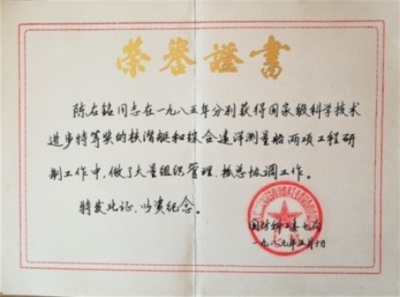 荣誉證書
陈右铭同志在一九八五年分别获得国家级科学技术
进步特等奖的核潜艇和综合远洋测量船两项工程研
制工作中，做了大量组织管理、抓总协调工作。
特发此证，以资纪念。
国防科工委
一九八九年五月十日